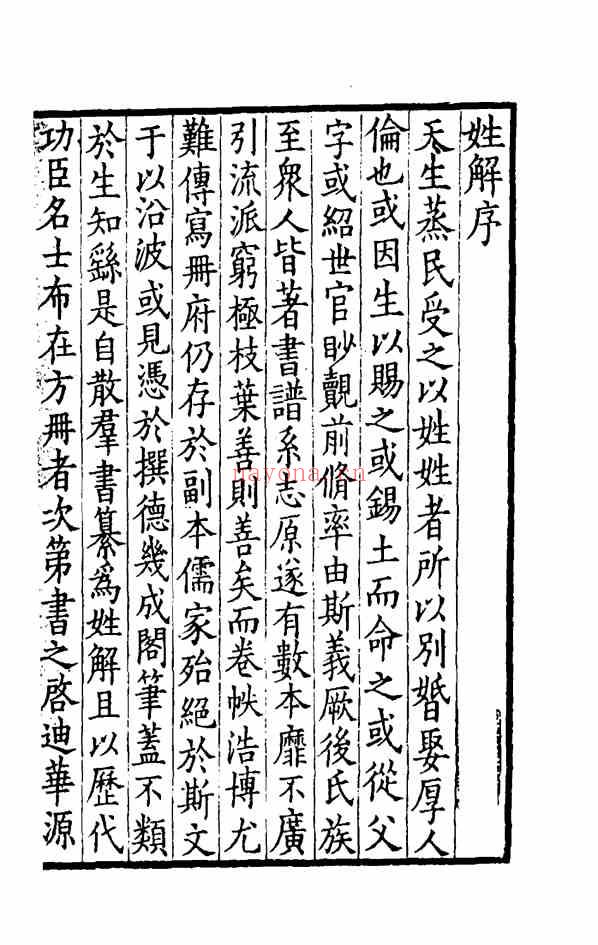 姓解序
天生蒸民受之以姓姓者所以別婚娶厚人
倫也或因生以賜之或錫土而命之或從父
字或紹世官眇覿前脩率由斯義厥後氏族
至衆人皆著書譜系志原遂有數本靡不廣
引流派窮極枝葉善則善矣而卷帙浩博尤
難傳寫冊府仍存於副本儒家殆絕於斯文
于以沿波或見憑於撰德幾成閣筆蓋不類
於生知繇是自散羣書纂爲姓解且以歷代
功臣名士布在方冊者次第書之啓迪華源
nayona.cn